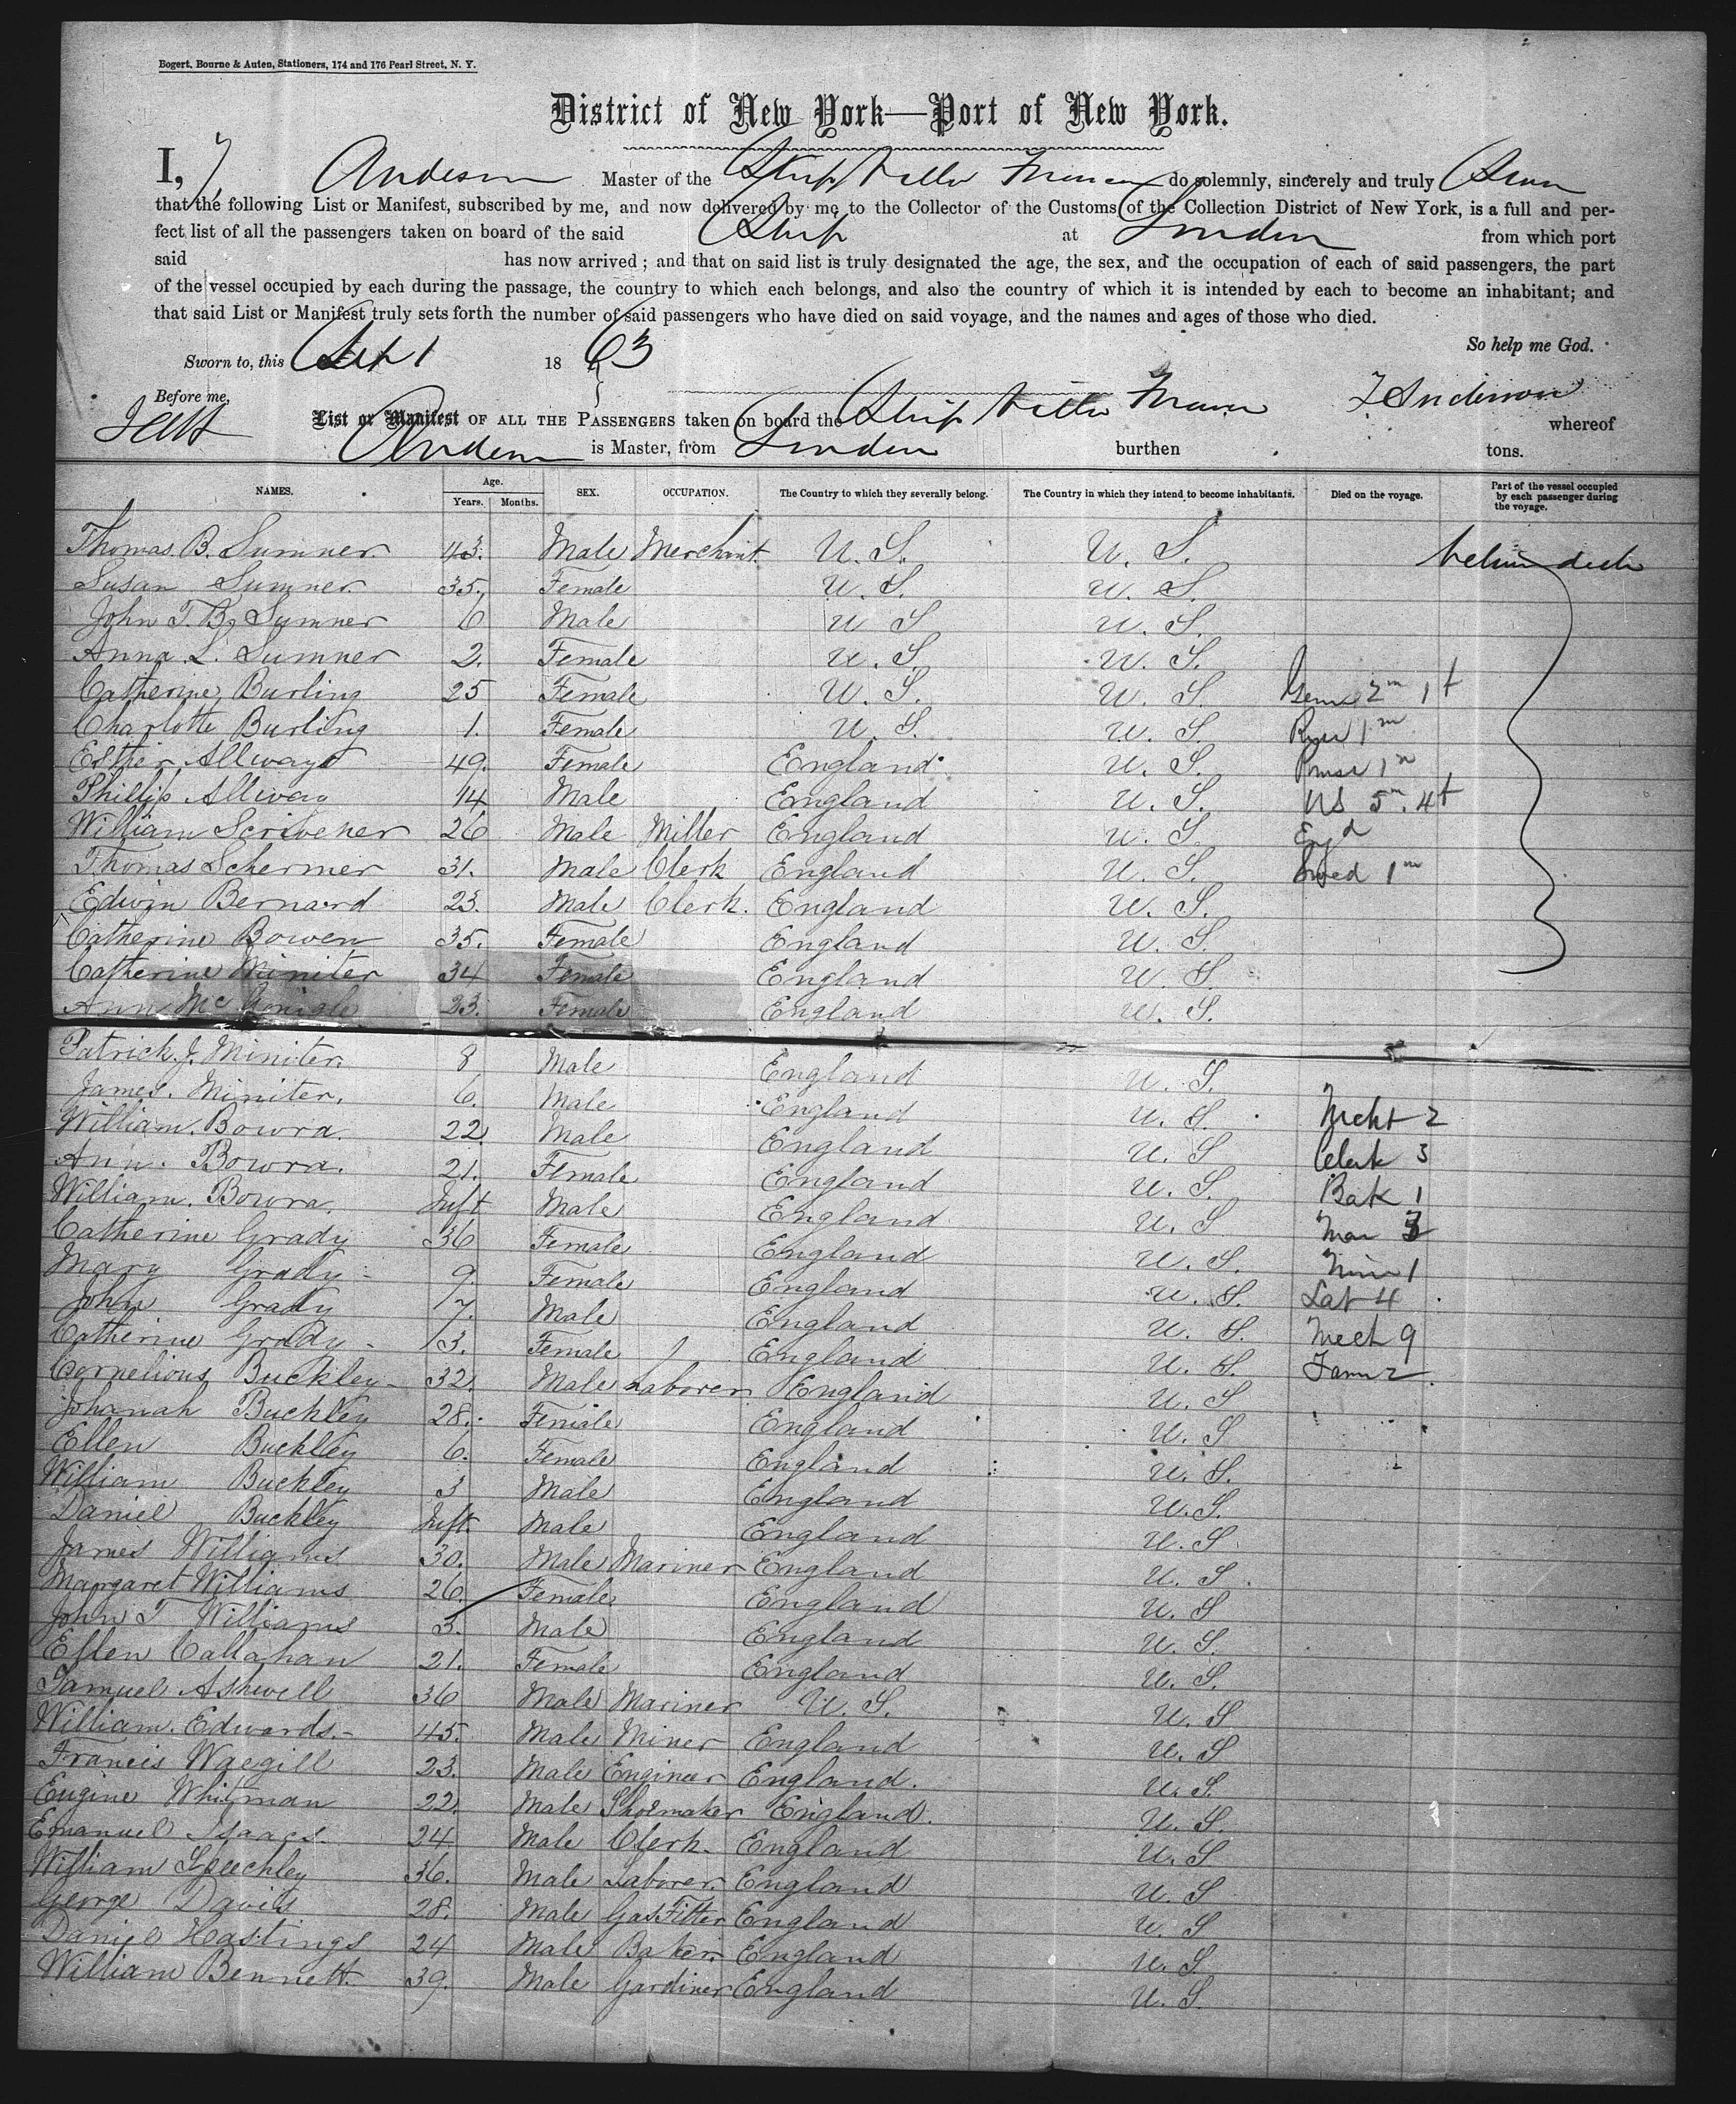 Bogert, Bourne & Auten, Stationers, 174 and 176 Pearl Street, N. Y.
District of New York—Port of New York.
I, Anderson Master of the Ship do solemnly, sincerely and truly
that the following List or Manifest, subscribed by me, and now delivered by me to the Collector of the Customs of the Collection District of New York, is a full and per-
fect list of all the passengers taken on board of the said Ship at London from which port
said has now arrived; and that on said list is truly designated the age, the sex, and the occupation of each of said passengers, the part
of the vessel occupied by each during the passage, the country to which each belongs, and also the country of which it is intended by each to become an inhabitant; and
that said List or Manifest truly sets forth the number of said passengers who have died on said voyage, and the names and ages of those who died.
So help me God.
Sworn to, this Sep 1 1863
Before me, Anderson
List or Manifest OF ALL THE PASSENGERS taken on board the Ship whereof
Anderson is Master, from London burthen tons.
NAMES. Age. Years. Months. SEX. OCCUPATION. The Country to which they severally belong. The Country in which they intend to become inhabitants. Died on the voyage. Part of the vessel occupied by each passenger during the voyage.
Thomas B. Sumner 43. Male Merchant U. S. U. S. between decks
Susan Sumner 35. Female U. S. U. S.
John T. B. Sumner 6 Male U S U. S.
Anna L. Sumner 2. Female U. S. U. S.
Catherine Burling 25 Female U. S. U. S. 2m 1f
Charlotte Burling 1. Female U. S. U. S. 1m
Esther Allways 49. Female England U. S. 1m
Phillip Allway 14 Male England U. S. US 5m. 4f
William Scrivener 26 Male Miller England U. S. Engd
Thomas Schermer 31. Male Clerk England U. S. Swed 1m
Edwin Bernard 23. Male Clerk. England U. S.
Catherine Bowen 35. Female England U. S.
Catherine Miniter 34 Female England U. S.
Ann McGonigle 23. Female England U. S.
Patrick J. Miniter. 8 Male England U. S.
James. Miniter. 6. Male England U. S. Mcht 2
William. Bowra. 22 Male England U. S Clerk 3
Ann. Bowra. 21. Female England U. S. Bak 1
William. Bowra. Inft Male England U. S Mar 3
Catherine Grady 36 Female England U. S. Min 1
Mary Grady 9. Female England U. S. Lab 4
John Grady 7. Male England U. S. Mech 9
Catherine Grady 3. Female England U. S. Farm 2
Cornelious Buckley 32. Male Laborer England U. S
Johanah Buckley 28. Female England U. S
Ellen Buckley 6. Female England U. S.
William Buckley 3 Male England U. S.
Daniel Buckley Inft. Male England U. S
James Williams 30. Male Mariner England U. S.
Margaret Williams 26. Female England U. S
John T Williams 3. Male England U. S.
Ellen Callahan 21. Female England U. S.
Samuel Ashwell 36 Male Mariner U. S. U. S
William. Edwards. 45. Male Miner England U. S
Francis Waegill 23. Male Engineer England. U. S.
Eugine Whitman 22. Male Shoemaker England. U. S.
Emanuel Isaacs. 24 Male Clerk. England U. S
William Speechley 36. Male Laborer. England U. S
George Davis 28. Male GasFitter England U. S
Daniel Hastings 24 Male Baker. England U. S
William Bennett. 39. Male Gardiner England U. S.